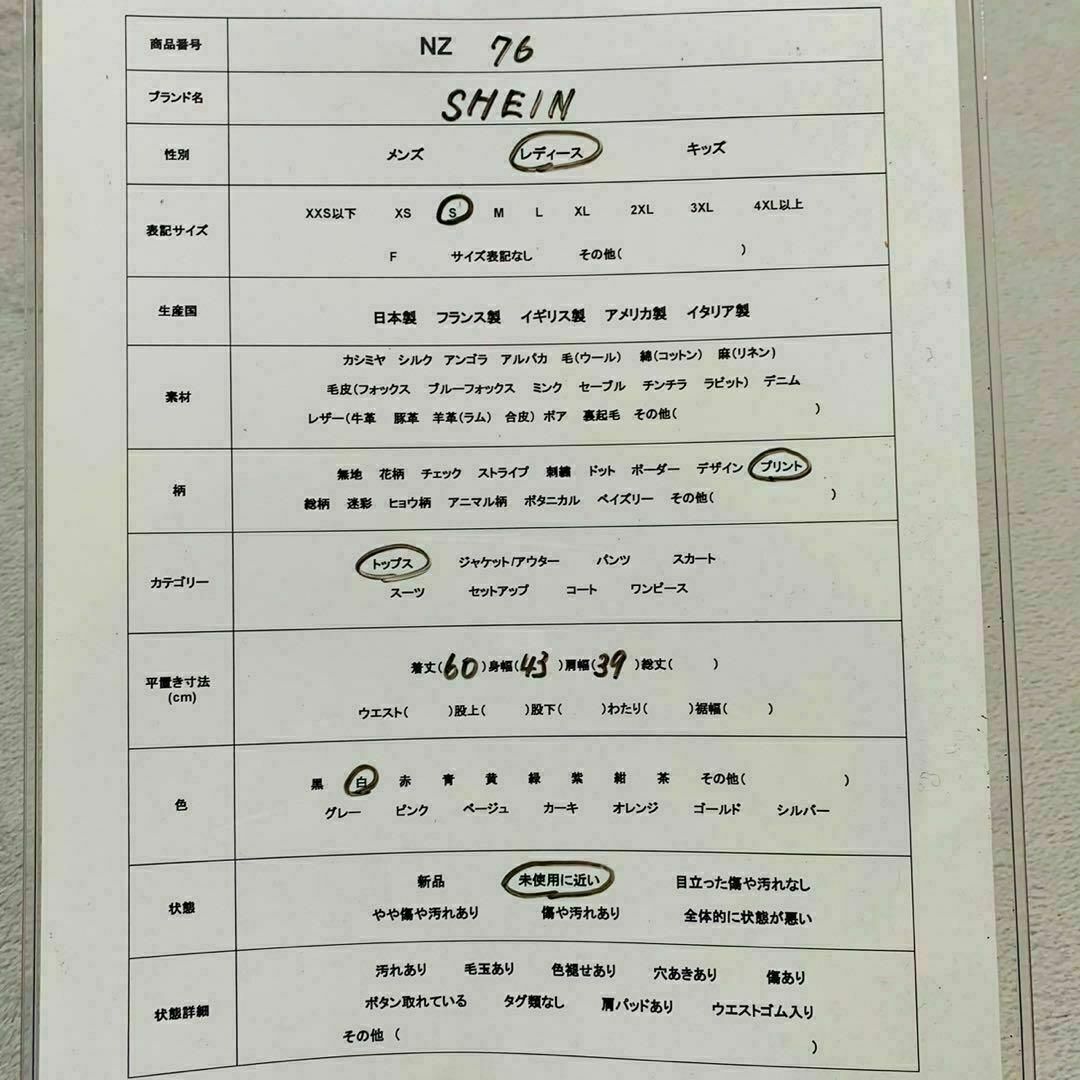 商品番号 NZ 76
ブランド名 SHEIN
性別 メンズ レディース キッズ
表記サイズ
XXS以下 XS S M L XL 2XL 3XL 4XL以上
F サイズ表記なし その他( )
生産国 日本製 フランス製 イギリス製 アメリカ製 イタリア製
素材
カシミヤ シルク アンゴラ アルパカ 毛(ウール) 綿(コットン) 麻(リネン)
毛皮(フォックス ブルーフォックス ミンク セーブル チンチラ ラビット) デニム
レザー(牛革 豚革 羊革(ラム) 合皮) ボア 裏起毛 その他( )
柄
無地 花柄 チェック ストライプ 刺繍 ドット ボーダー デザイン プリント
総柄 迷彩 ヒョウ柄 アニマル柄 ボタニカル ペイズリー その他( )
カテゴリー
トップス ジャケット/アウター パンツ スカート
スーツ セットアップ コート ワンピース
平置き寸法
(cm)
着丈(60)身幅(43)肩幅(39)総丈( )
ウエスト( )股上( )股下( )わたり( )裾幅( )
色
黒 白 赤 青 黄 緑 紫 紺 茶 その他( )
グレー ピンク ベージュ カーキ オレンジ ゴールド シルバー
状態
新品 未使用に近い 目立った傷や汚れなし
やや傷や汚れあり 傷や汚れあり 全体的に状態が悪い
状態詳細
汚れあり 毛玉あり 色褪せあり 穴あきあり 傷あり
ボタン取れている タグ類なし 肩パッドあり ウエストゴム入り
その他 ( )